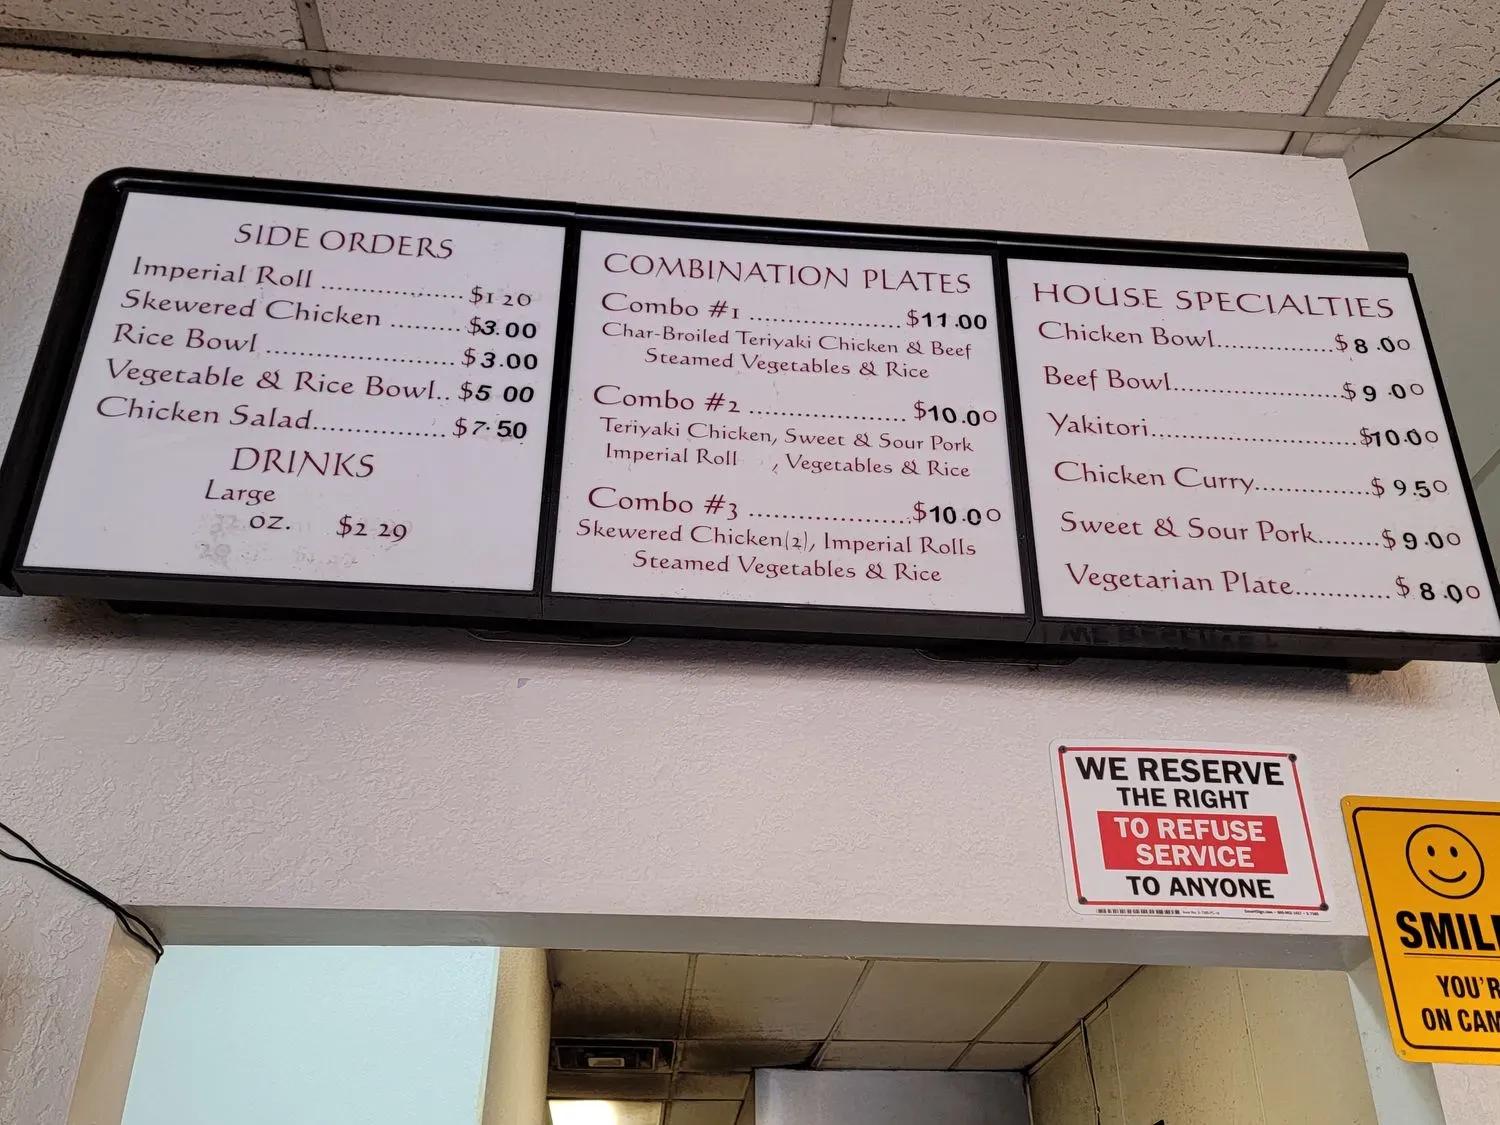 SIDE ORDERS
Imperial Roll ................ $1 20
Skewered Chicken ......... $3.00
Rice Bowl ........................ $3.00
Vegetable & Rice Bowl.. $5 00
Chicken Salad................. $7.50
DRINKS
Large
oz. $2 29
COMBINATION PLATES
Combo #1 .................... $11.00
Char-Broiled Teriyaki Chicken & Beef
Steamed Vegetables & Rice
Combo #2 ..................... $10.00
Teriyaki Chicken, Sweet & Sour Pork
Imperial Roll , Vegetables & Rice
Combo #3 ..................... $10.00
Skewered Chicken(2), Imperial Rolls
Steamed Vegetables & Rice
HOUSE SPECIALTIES
Chicken Bowl................ $8.00
Beef Bowl....................... $9.00
Yakitori............................ $10.00
Chicken Curry................ $9.50
Sweet & Sour Pork........ $9.00
Vegetarian Plate............ $8.00
WE RESERVE
THE RIGHT
TO REFUSE
SERVICE
TO ANYONE
SMIL
YOU'R
ON CAM